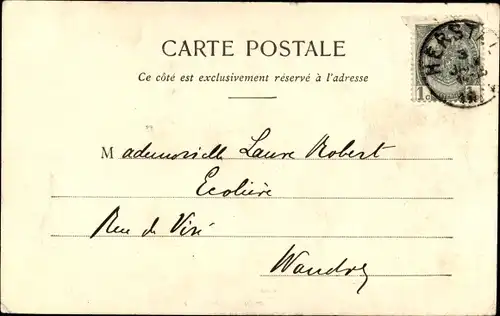 CARTE POSTALE
Ce côté est exclusivement réservé à l'adresse
HERSTAL
1 1
Mademoiselle Laure Robert
Ecolière
Rue de Visé
Wandre